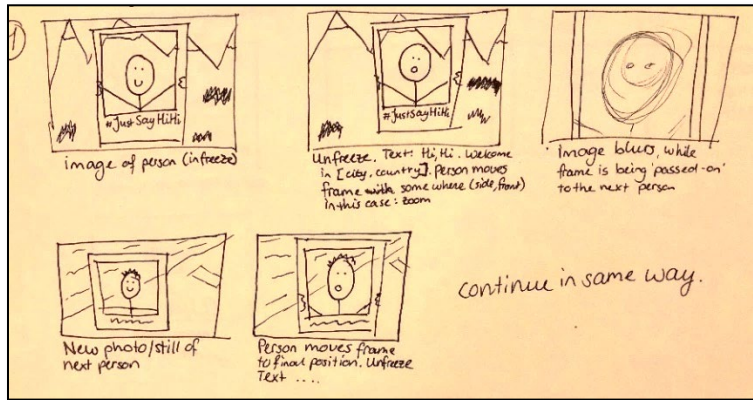 1
#JustSayHiHi
#JustSayHiHi
image of person (in freeze)
Unfreeze. Text: Hi, Hi. Welcome
in [city, country]. Person moves
frame some where (side, front)
In this case: zoom
Image blurs, while
frame is being 'passed-on'
to the next person
New photo/still of
next person
Person moves frame
to final position. Unfreeze
Text ....
continue in same way.